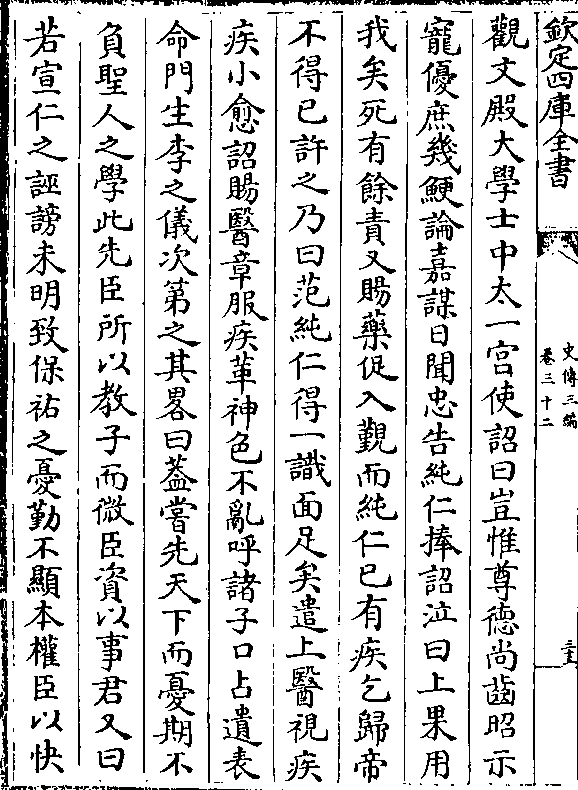 欽定四庫全書
史傳三編
卷三十二
三五
觀文殿大學士中太一宮使詔曰豈惟尊德尚齒昭示
寵優庶幾鯁論嘉謀日聞忠告純仁捧詔泣曰上果用
我矣死有餘責又賜藥促入覲而純仁已有疾乞歸帝
不得已許之乃曰范純仁得一識面足矣遣上醫視疾
疾小愈詔賜醫章服疾革神色不亂呼諸子口占遺表
命門生李之儀次第之其畧曰葢嘗先天下而憂期不
負聖人之學此先臣所以教子而微臣資以事君又曰
若宣仁之誣謗未明致保祐之憂勤不顯本權臣以快